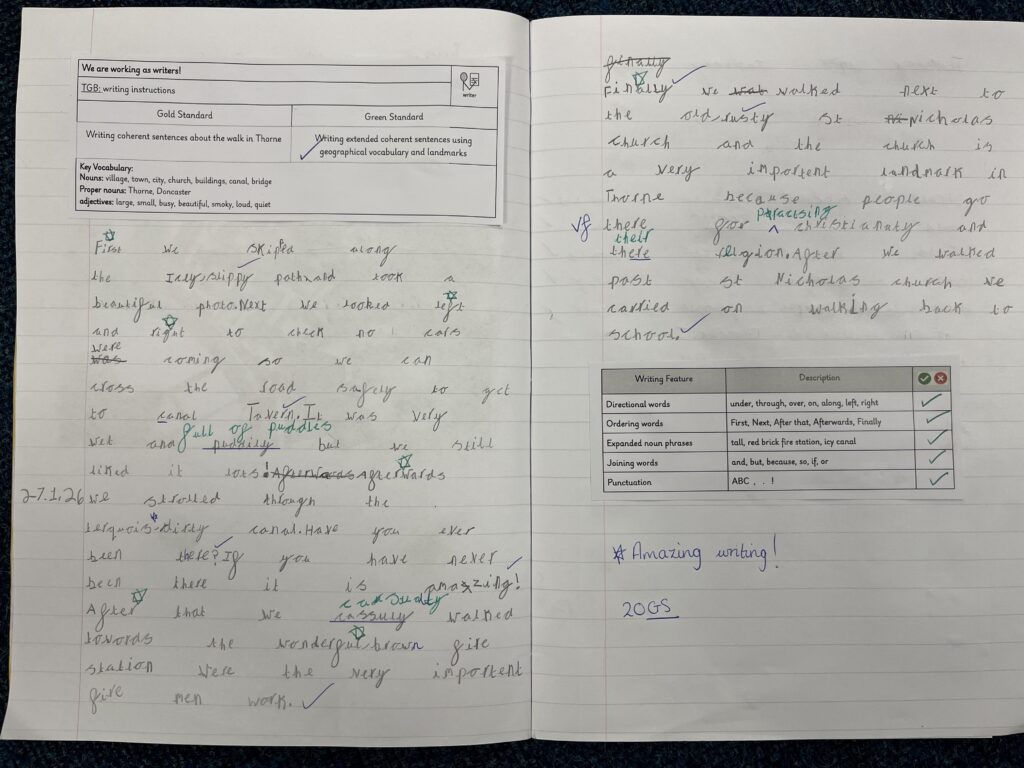 We are working as writers!
TGB: writing instructions
writer
Gold Standard
Green Standard
Writing coherent sentences about the walk in Thorne
Writing extended coherent sentences using
geographical vocabulary and landmarks
Key Vocabulary:
Nouns: village, town, city, church, buildings, canal, bridge
Proper nouns: Thorne, Doncaster
adjectives: large, small, busy, beautiful, smoky, loud, quiet
First we skiped along
the Icey, slippy path and took a
beautiful photo. Next we looked left
and right to check no cars
were
was coming so we can
cross the road safely to get
to canal Tavern. It was very
full of puddles
wet and puddily but we still
liked it lots! Afterwoads Afterwards
27.1.26 we strolled through the
terquois-Dirty canal. Have you ever
been there? If you have never
been there it is amazzing!
casually
After that we cassuly walked
towords the wonderful, brown fire
station were the very importent
fire men work.
finally
Finally we wat walked next to
the old, rusty st ni Nicholas
church and the church is
a very importent landmark in
Thorne because people go
practising
vf there for christianaty and
their
there religion. After we walked
past st Nicholas church we
carried on walking back to
school.
Writing Feature Description
Directional words under, through, over, on, along, left, right
Ordering words First, Next, After that, Afterwards, Finally
Expanded noun phrases tall, red brick fire station, icy canal
Joining words and, but, because, so, if, or
Punctuation ABC , . !
Amazing writing!
20GS